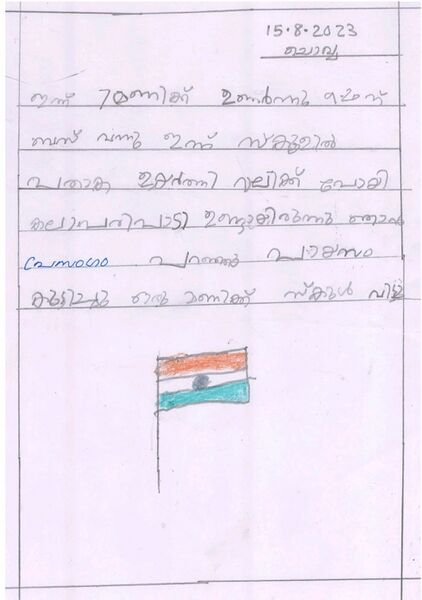 15.8.2023
ചൊവ്വ
ഇന്ന് 7മണിക്ക് ഉണർന്നു
ബസ് വന്നു ഇന്ന് സ്കൂളിൽ
പതാക ഉയർത്തി റാലിക്ക് പോകി
കലാപരിപാടി ഉണ്ടാകിരുന്നു ഞാൻ
പ്രസംഗം പറഞ്ഞു പായസം
കുടിച്ചു ഒരു മണിക്ക് സ്കൂൾ വിട്ടു